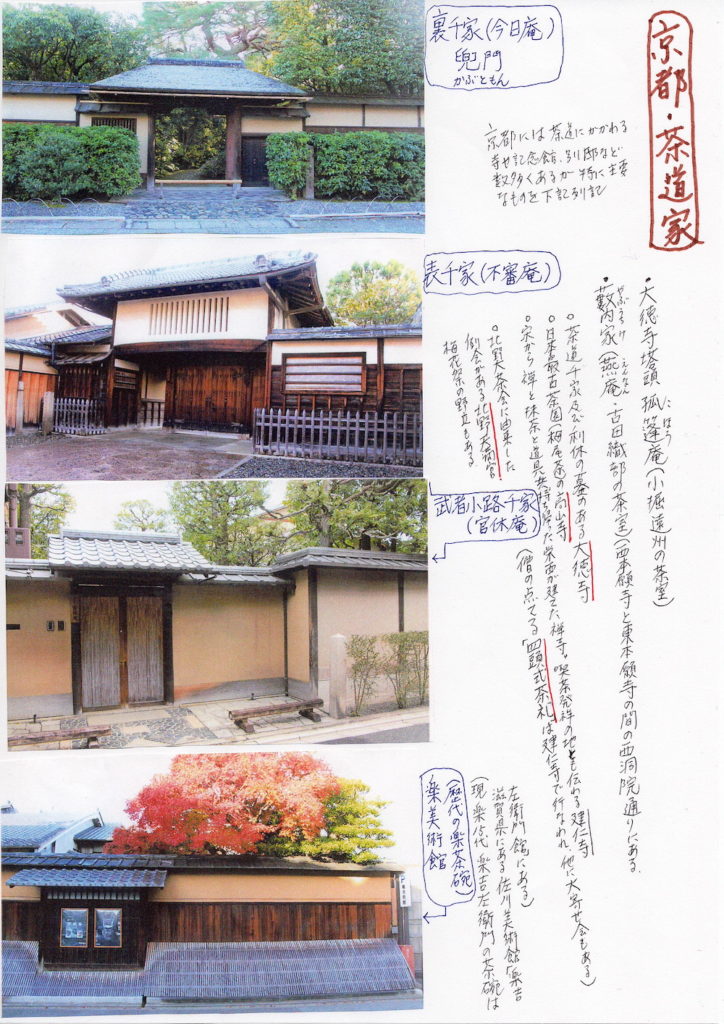 京都・茶道家
京都には茶道にかかわる
寺や記念館、別邸など
数多くあるが特に主要
なものを下記列記
裏千家(今日庵)
兜門
かぶともん
表千家(不審庵)
武者小路千家
(官休庵)
楽美術館
(歴代の楽茶碗)
・大徳寺塔頭 孤篷庵(小堀遠州の茶室)
こほう
・藪内家(燕庵・古田織部の茶室)(西本願寺と東本願寺の間の西洞院通りにある.
やぶうちけ
えんなん
・茶道千家及び利休の墓のある大徳寺
・日本最古茶園(栂尾茶の高山寺
・宋から禅と抹茶と道具を持ち帰った栄西が建てた禅寺。喫茶発祥の地とも伝わる建仁寺
(僧の点てる「四頭式茶礼は建仁寺で行なわれ、他に大寄せ会もある)
・北野大茶会に由来した
例会がある北野天満宮
梅花祭の野立もある
(現楽15代 楽吉左衛門の茶碗は
滋賀県にある佐川美術館「楽吉
左衛門館にある)